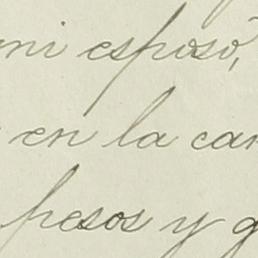 mi esposo,
en la car
pesos y g